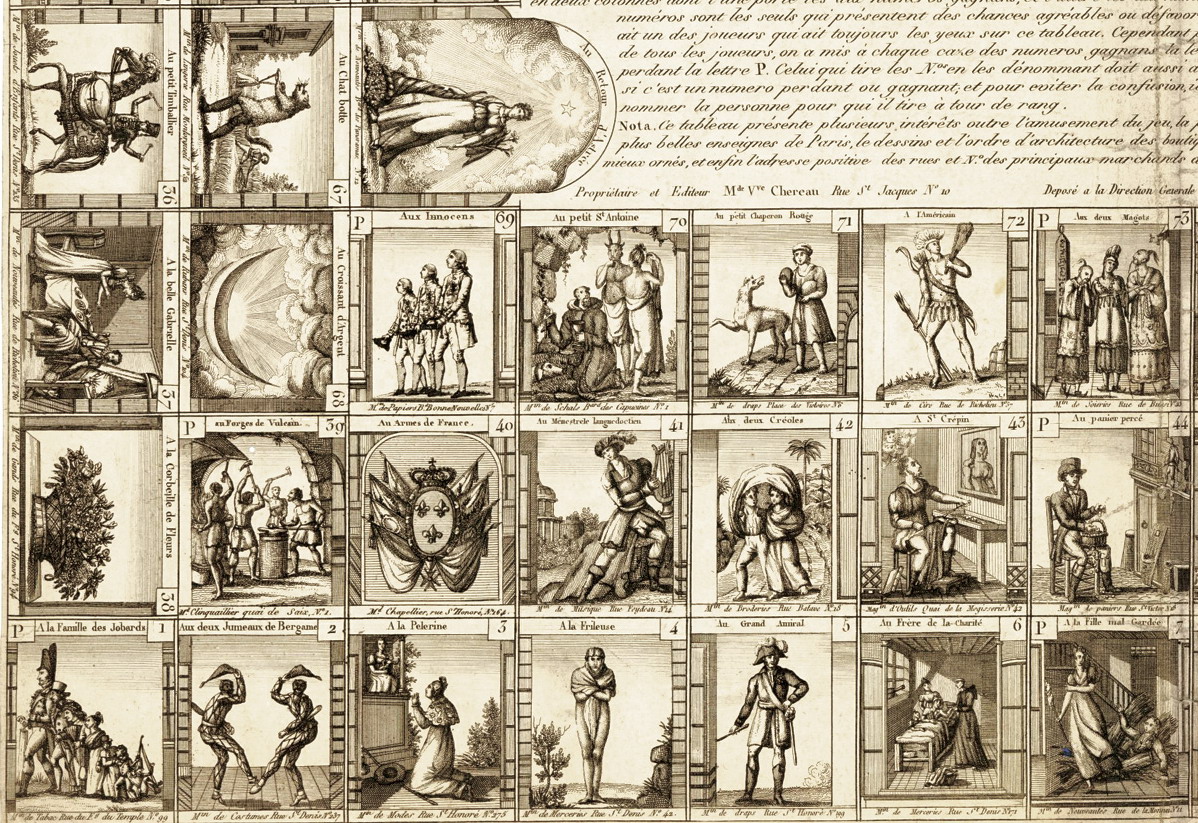 numeros sont les seuls qui présentent des chances agréables ou défavor
ait un des joueurs qui ait toujours les yeux sur ce tableau. Cependant
de tous les joueurs, on a mis à chaque case des numeros gagnans la le
perdant la lettre P. Celui qui tire les Nos en les dénommant doit aussi a
si c'est un numero perdant ou gagnant; et pour eviter la confusion,
nommer la personne pour qui il tire à tour de rang.
Nota. Ce tableau présente plusieurs intérêts outre l'amusement du jeu, la
plus belles enseignes de Paris, le dessins et l'ordre d'architecture des bouti
mieux ornés, et enfin l'adresse positive des rues et Nos des principaux marchands
Propriétaire et Editeur Mde Vve Chereau Rue St Jacques No 10
Deposé a la Direction Generale
Au petit Timballier
36
Au Chat botté
67
Au Retour d'Astrée
A la belle Gabrielle
37
Au Croissant d'Argent
68
P Aux Innocens 69
Md de Papiers Bd Bonne Nouvelle No 7
Au petit St Antoine 70
Min de Schals Bard des Capucines No 1
Au petit Chaperon Rouge 71
Min de draps Place des Victoires No 6
A l'Américain 72
Min de Cire Rue de Richelieu No 37
P Aux deux Magots 73
Min de Soieries Rue de Bussi
A la Corbeille de Fleurs
38
P aux Forges de Vulcain 39
Md Clinquaillier quai de Saix, No 2.
Au Armes de France. 40
Md Chapellier, rue St Honoré, No 164.
Au Ménestrele languedoctien 41
Min de Musique Rue Feydeau No 14
Aux deux Créoles 42
Min de Broderies Rue Balave No 18
A St Crépin 43
Magin d'Outils Quai de la Megisserie No 42
P Au panier percé 44
Magin de paniers Rue St Victor No 6
P A la Famille des Jobards 1
Min de Tabac Rue du Fg du Temple No 99
Aux deux Jumeaux de Bergame 2
Min de Costumes Rue St Denis No 237
A la Pelerine 3
Min de Modes Rue St Honoré No 275
A la Frileuse 4
Min de Merceries Rue St Denis No 42.
Au Grand Amiral 5
Min de draps Rue St Honoré No 199
Au Frère de la Charité 6
Min de Merceries Rue St Denis No 71
P A la Fille mal Gardée 7
Min de Nouveautés Rue de la Monnaie No 11